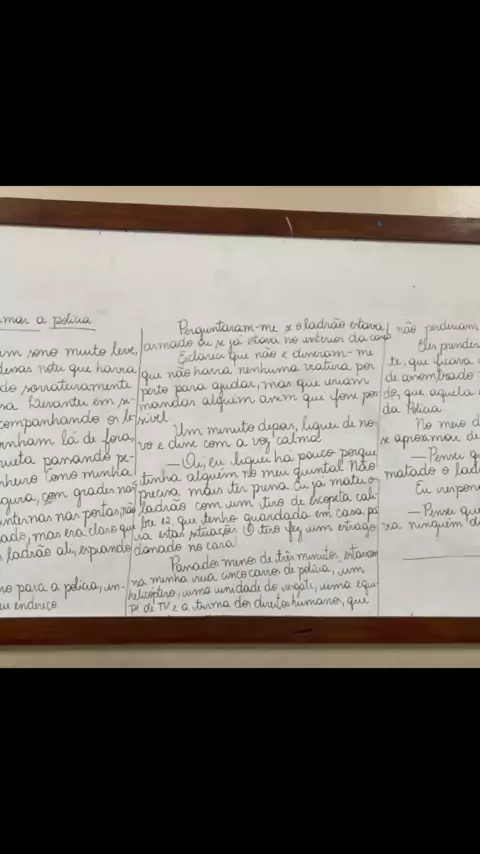 mar a polícia
um sono muito leve,
dessas notei que havia
do sorrateiramente
sa. Levantei em si-
companhando os le
inham lá de fora,
ueta passando pe-
nheiro. Como minha
gura, com grades nas
internas nas portas, não
ado, mas era claro que
ladrão ali, espiando
para a polícia, in-
eu endereço
Perguntaram-me se o ladrão estava
armado ou se já estava no interior da casa
Esclareci que não e disseram-me
que não havia nenhuma viatura por
perto para ajudar, mas que iriam
mandar alguém assim que fosse pos
sível.
Um minuto depois, liguei de no-
vo e disse com a voz calma:
— Oi, eu liguei há pouco porque
tinha alguém no meu quintal. Não
precisa mais ter pressa. Eu já matei o
ladrão com um tiro de escopeta cali
bre 12, que tenho guardada em casa pa
ra estas situações. O tiro fez um estrago
danado no cara!
Passados menos de três minutos, estavam
na minha rua cinco carros de polícia, um
helicóptero, uma unidade do resgate, uma equi-
pe de TV e a turma dos direitos humanos, que
não perderiam
Eles prender
te, que ficava
de assombrado
do, que aquela
da Polícia.
No meio d
se aproximou de
— Pensei q
matado o lad
Eu respon
— Pensei qu
ninguém d